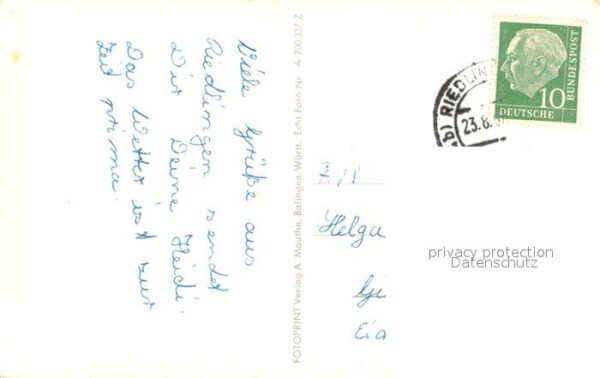 Viele Grüße aus
Riedlingen sendet
Dir Deine Heidi.
Das Wetter ist zur
Zeit prima.
FOTOPRINT Verlag A. Mauthe, Balingen Württ. Echt Foto Nr A 700.337 Z
RIEDLIN
23.8.
10
DEUTSCHE
BUNDESPOST
Helga
privacy protection
Datenschutz